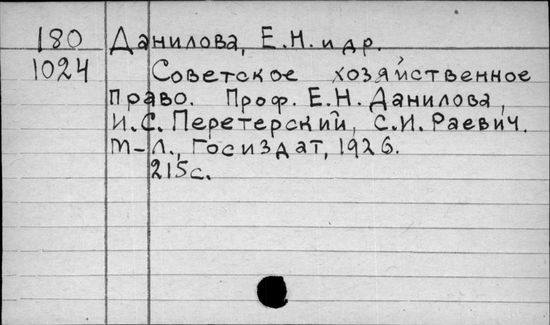 180 Данилова, Е.Н. и др.
1024 Советское хозяйственное
право. Проф. Е.Н. Данилова,
И.С. Перетерский, С.И. Раевич.
М-Л., Госиздат, 1926.
215с.